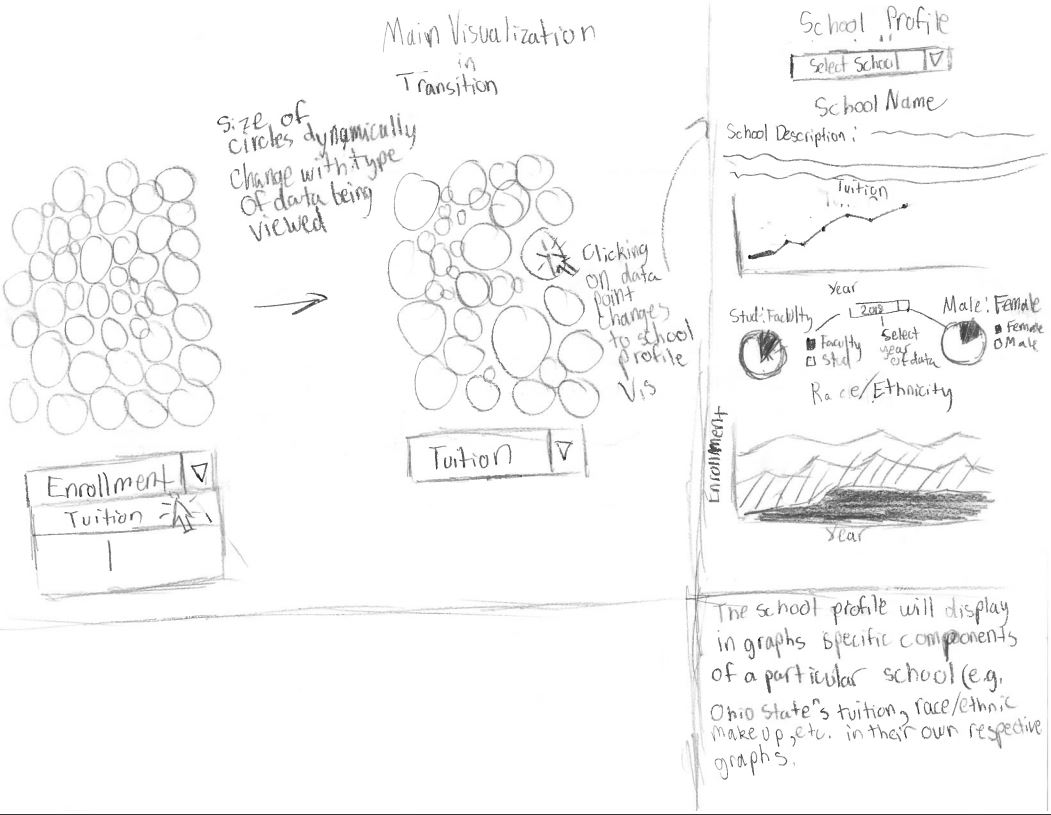 Main Visualization
in
Transition
Size of
circles dynamically
change with type
of data being
viewed
Clicking
on data
point
changes
to school
profile
Vis
Enrollment
Tuition
Tuition
School Profile
Select School
School Name
School Description:
Tuition
Year
Stud:Faculty
Faculty
Stud
2012
Select
year
of data
Male:Female
Female
Male
Race/Ethnicity
Enrollment
Year
The school profile will display
in graphs specific components
of a particular school (e.g.
Ohio State's tuition, race/ethnic
makeup, etc. in their own respective
graphs.